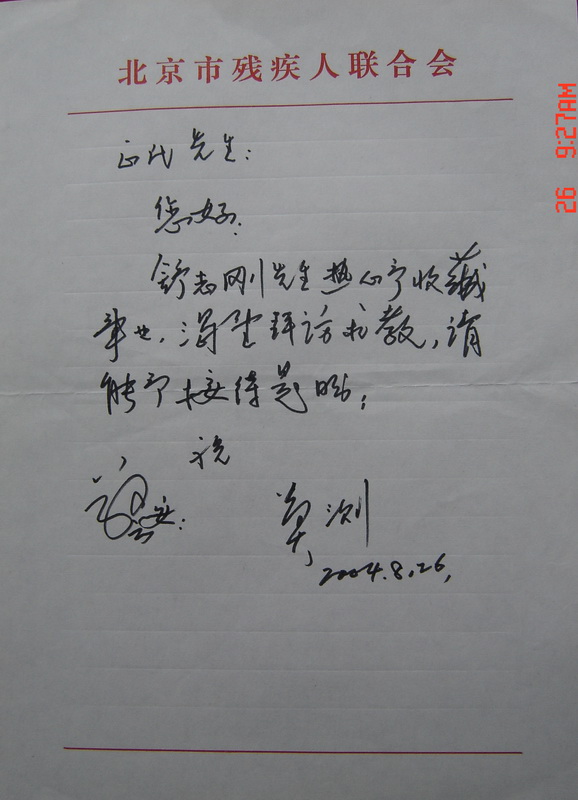 北京市残疾人联合会
正代先生：
您好！
舒志刚先生热心于收藏
事业，
拜访求教，请
能予接待是盼；
祝
安：
2004.8.26,
26 9:27AM